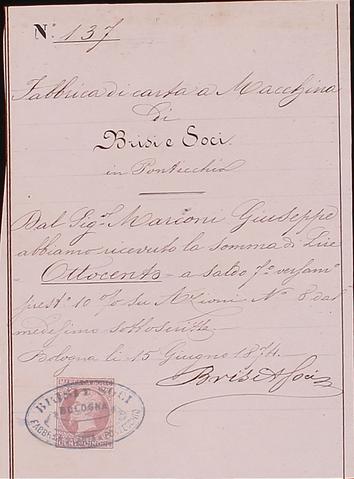 N.° 137
Fabbrica di carta a Macchina
di
Brisi e Soci.
in Pontecchio
Dal Sig.r Marconi Giuseppe
abbiamo ricevuto la somma di Lire
Ottocento a saldo 7.° versam.to
10 % su Azioni N. 8 dal
medesimo sottoscritte.
Bologna li 15 Giugno 1874.
Brisi e Soci
BRISI E SOCI
BOLOGNA